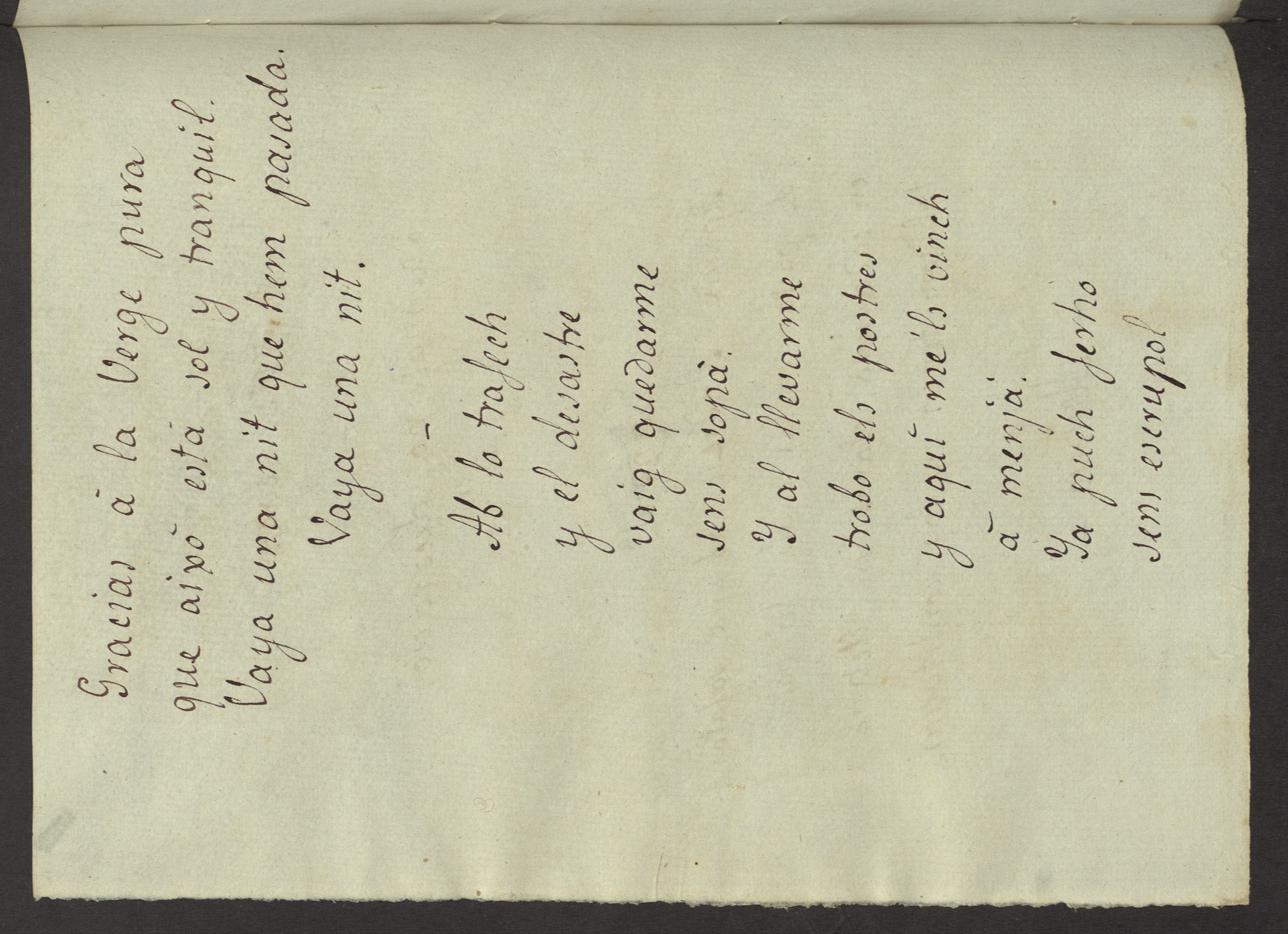 Gracias á la Verge pura
que aixó está sol y tranquil.
Vaya una nit que hem pasada.
Vaya una nit.
–
Ab lo trafech
y el desastre
vaig quedarme
sens sopá.
Y al llevarme
trobo els postres
y aquí me 'ls vinch
á menjá.
Ja puch ferho
sens escrupol